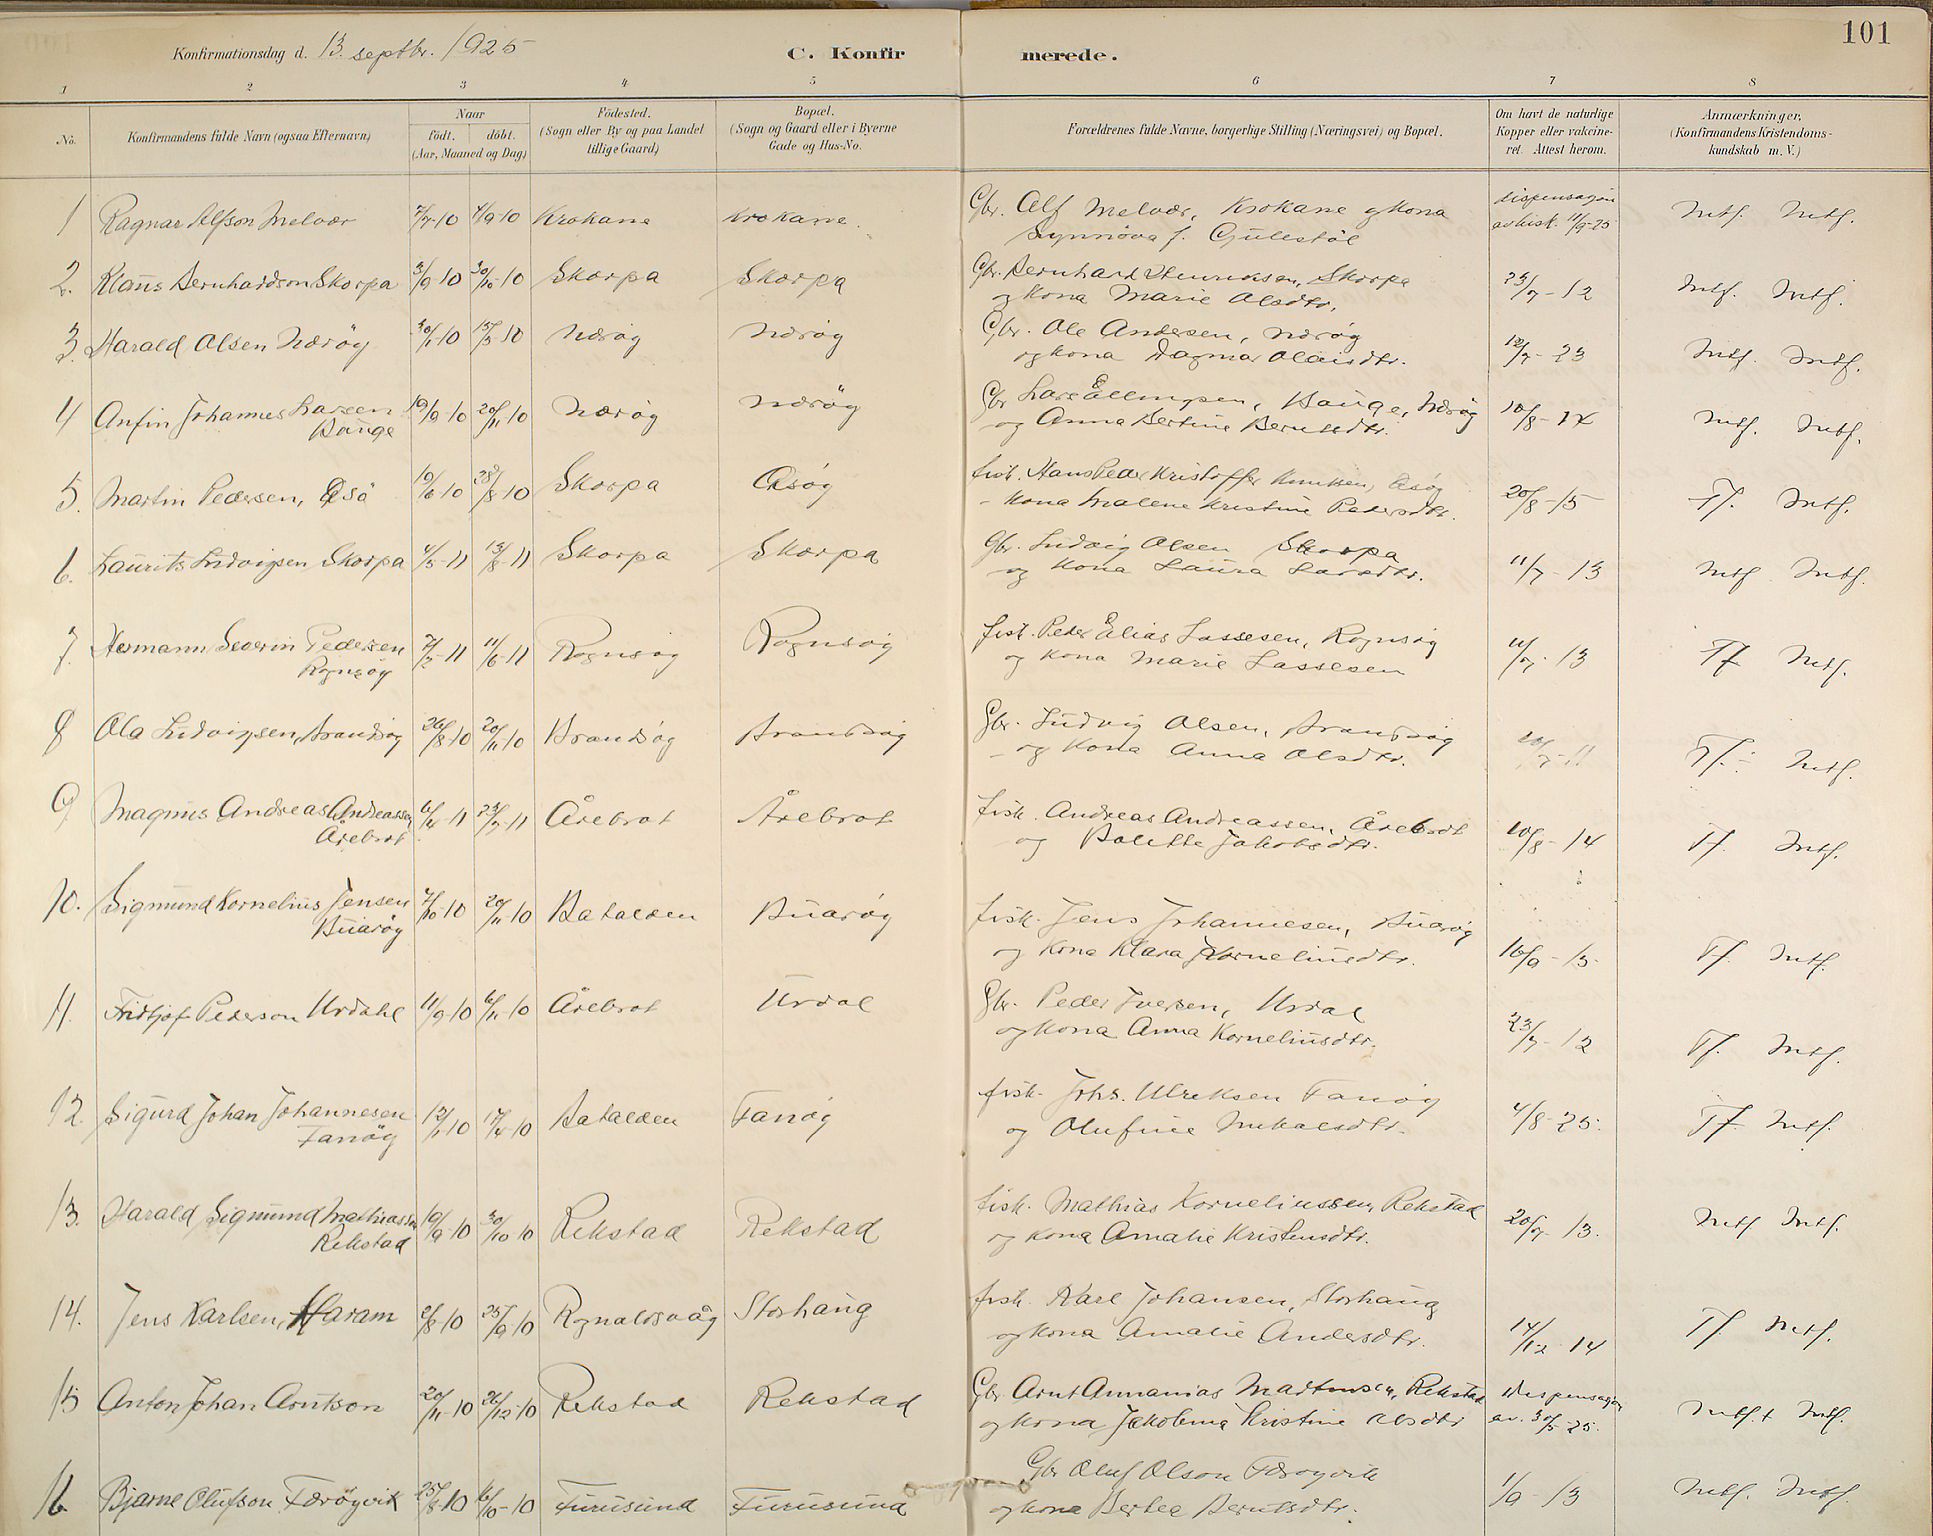 101
Konfirmationsdag d. 13. septbr. 1925
C. Konfirmerede.
1 2 3 4 5 6 7 8
No.
Konfirmandens fulde Navn (ogsaa Efternavn)
Naar
födt. döbt.
(Aar, Maaned og Dag)
Födested.
(Sogn eller By og paa Landet
tillige Gaard)
Bopæl.
(Sogn og Gaard eller i Byerne
Gade og Hus-No.
Forældrenes fulde Navne, borgerlige Stilling (Næringsvei) og Bopæl.
Om havt de naturlige
Kopper eller vakcine-
ret. Attest herom.
Anmærkninger,
(Konfirmandens Kristendoms-
kundskab m. V.)
1 Ragnar Alfson Melvær 4/9-10 Krokane Krokane. Gbr. Alf Melvær, Krokane og kona dispensasjon
Synnöva f. Gulestöl av bisk. 11/9-25 Mtf. Mtf.
2. Klaus Bernhardson Skorpa 3/9-10 30/10-10 Skorpa Skorpa Gbr. Bernhard Henriksen, Skorpa
og kona Marie Olsdtr. 23/7-12 Mtf. Mtf.
3. Harald Olsen Næröy 30/1-10 15/5-10 Næröy Næröy Gbr. Ole Andersen, Næröy
og kona Dagmar Olaisdtr. 12/7-23 Mtf. Mtf.
4 Anfin Johannes Larsen 19/9-10 20/11-10 Næröy Næröy Gbr Lars Ellingsen, Hauge, Næröy
Hauge og Anna Bertine Berntsdtr. 10/8-14 Mtf. Mtf.
5. Martin Pedersen, Åsö 19/6-10 28/8-10 Skorpa Åsöy fisk. Hans Peder Kristoffer Knutsen, Åsöy
- kona Malene Kristine Pedersdtr. 20/8-15 Tf. Mtf.
6. Laurits Ludvigsen Skorpa 4/5-11 13/8-11 Skorpa Skorpa Gbr. Ludvig Olsen Skorpa
og kona Laura Larsdtr. 11/7-13 Mtf Mtf.
7. Hermann Severin Pedersen 7/2-11 11/6-11 Rognsöy Rognsöy fisk. Peder Elias Lassesen, Rognsöy
Rognsöy og kona Marie Lassesen 11/7-13 Tf Mtf.
8 Ola Ludvigsen, Brandsöy 26/8-10 20/11-10 Brandsöy Brandsöy Gbr. Ludvig Olsen, Brandsöy
- og kona Anna Olsdtr. Tf. Mtf.
9 Magnus Andreas Andreassen 6/4-11 23/7-11 Årebrot Årebrot fisk. Andreas Andreassen, Årebrot
Årebrot. og Bolette Jakobsdtr. 10/8-14 Tf. Mtf.
10. Sigmund Kornelius Jensen 7/10-10 20/11-10 Batalden Buaröy fisk. Jens Johannesen, Buaröy
Buaröy og kona Klara Korneliusdtr. 16/9-13 Tf. Mtf.
11. Fridtjof Pederson Urdahl 11/9-10 6/11-10 Årebrot Urdal Gbr. Peder Iversen, Urdal
og kona Anna Korneliusdtr. 23/7-12 Tf. Mtf.
12. Sigurd Johan Johannesen 12/1-10 17/4-10 Batalden Fanöy fisk. Johs. Ulriksen Fanöy
Fanöy og Olufine Mikalsdtr. 4/8-25. Tf. Mtf.
13. Harald Sigmund Mathiassen 19/9-10 30/10-10 Rekstad Rekstad fisk. Mathias Korneliussen, Rekstad
Rekstad og kona Amalie Kristensdtr. 20/7-13. Mtf Mtf.
14. Jens Karlsen, Haram 2/8-10 25/9-10 Rognaldsvåg Storhaug fisk. Karl Johansen, Storhaug
og kona Amalie Andersdtr. 14/12-14 Tf Mtf.
15 Anton Johan Arntson 20/11-10 26/12-10 Rekstad Rekstad Gbr Arnt Annanias Martinsen, Rekstad Dispensasjon
og kona Jakobina Kristine Olsdtr av. 30/5-25. Mtf.+ Mtf.
16. Bjarne Olufson Færöyvik 25/8-10 6/10-10 Furusund Furusund Gbr Oluf Olson Færöyvik
og kona Berte Berntsdtr. 1/9-13 Mtf. Mtf.